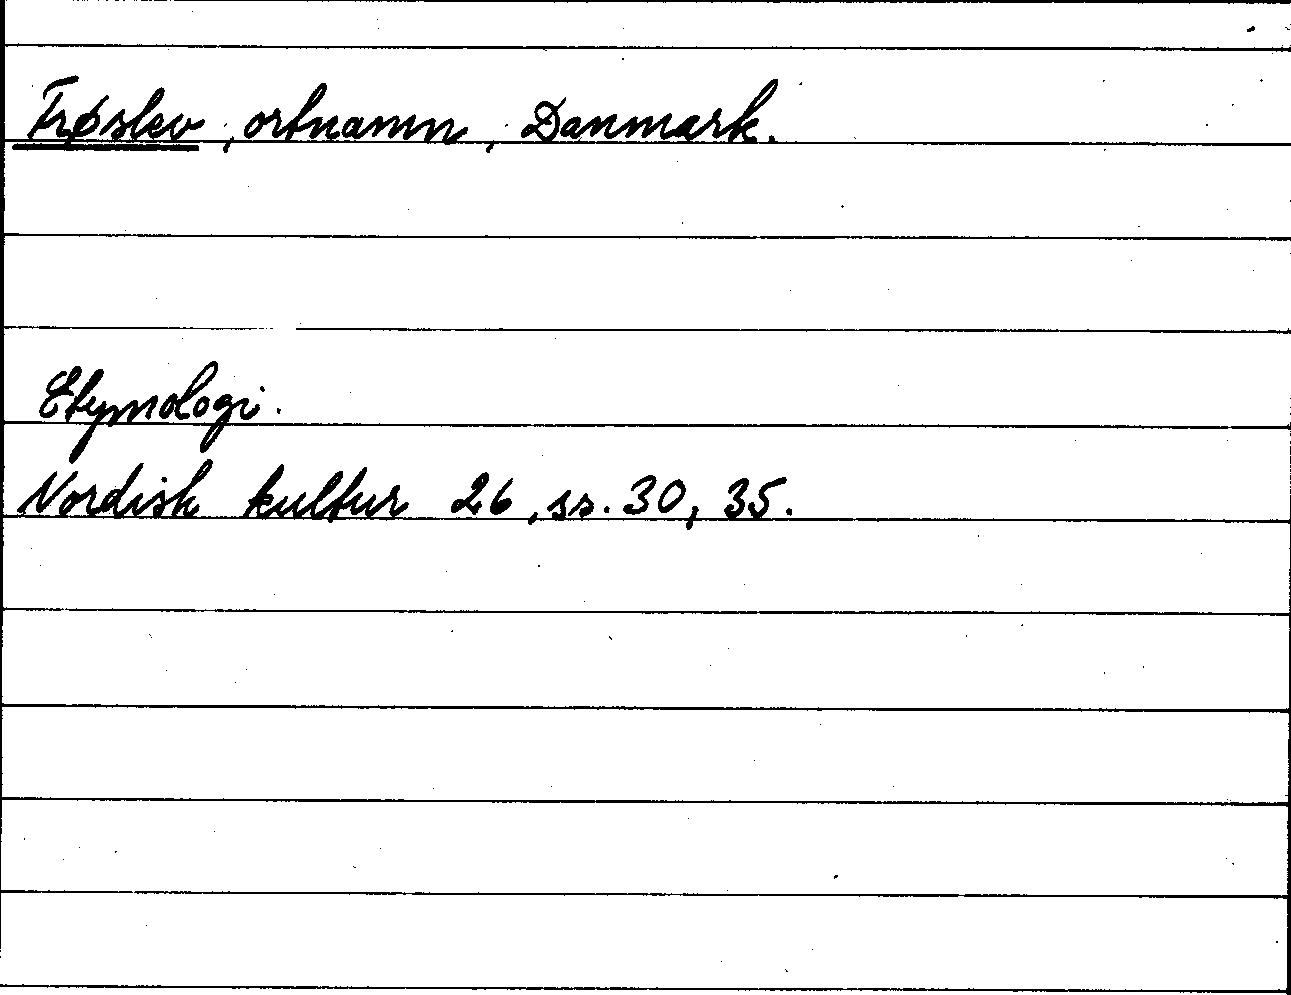 Frøslev, ortnamn, Danmark.
Etymologi.
Nordisk kultur 26, ss. 30, 35.